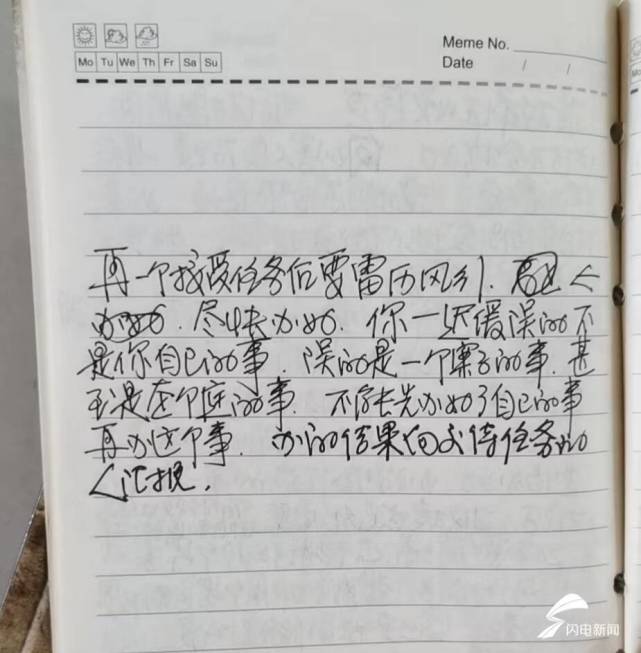 Mo Tu We Th Fr Sa Su
Meme No.
Date / /
再一个接受任务后要雷厉风行.
办好.尽快办好.你一迟缓误的不
是你自己的事.误的是一个案子的事.甚
至是整个庭的事.不能去先办好了自己的事
再办这个事.办的结果向交待任务的
人汇报.
闪电新闻